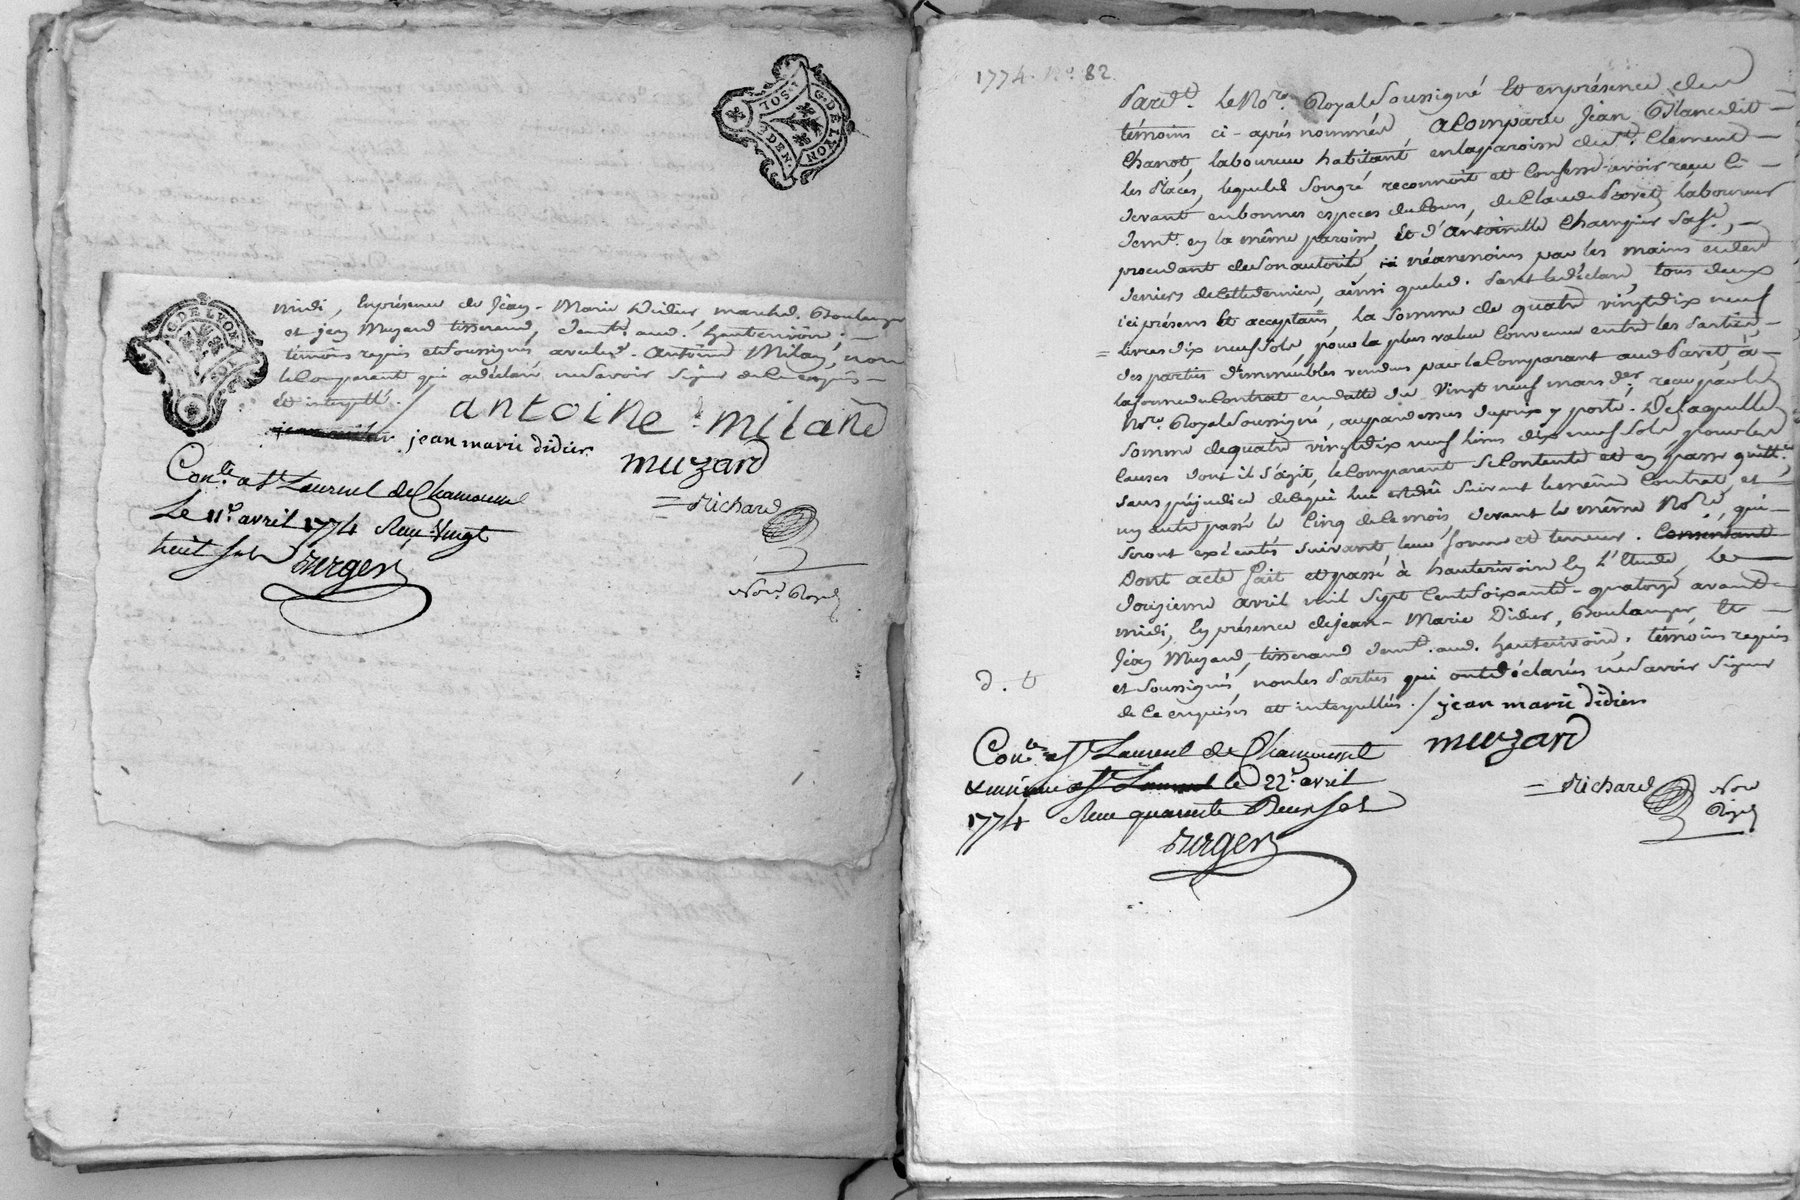 G. DE LYON
G. DE LYON
midi, En présence de Jean-Marie Didier marchd. Boulanger
et jean Muzard tisserand, demts. aud. hauterivoire,
témoins requis et soussignés, avec led. Antoine Milan, non
le Comparant qui a déclaré ne savoir signer de ce enquis
et interpellé. /
antoine miland
jean marie didier
muzard
Conlé a St Laurent de Chamousset
= Richard
Le 11e. avril 1774 Reçu Vingt
huit sols
Surgers
Nore. Royal
1774. No. 82
Pardt. le Nore. Royal Soussigné Et en présence des
témoins ci-après nommés, a Comparu Jean Blanc dit
Chanot, laboureur habitant en la paroisse de St. Clement
les Places, lequel de son gré reconnoit et Confesse avoir reçu ci
devant en bonnes espèces de Cours, de Claude Poret laboureur
demt. en la même paroisse, Et d'Antoinette Champier sa fe.,
procedant de son autorité, néanmoins par les mains et des
deniers de cette dernière, ainsi que led. Poret le déclare, tous deux
ici présens Et acceptans, la somme de quatre vingt dix neuf
= livres dix neuf sols, pour la plus value Convenue entre les Parties,
des parties d'immeubles vendus par le Comparant aud. Poret, à
la forme du Contrat en datte du Vingt neuf mars der. reçu par le
Nore. Royal Soussigné, au par dessus du prix y porté. De laquelle
somme de quatre vingt dix neuf livres dix neuf sols, pour les
causes dont il s'agit, le Comparant se Contente et en passe quittce.
sans préjudice de ce qui lui est dû suivant le même Contrat, et
un autre passé le Cinq de ce mois, devant le même Nore., qui
seront exécutés suivant leur forme et teneur. Consentant
Dont acte fait et passé à hauterivoire En l'Etude, le
douzieme avril mil sept Cent soixante-quatorze avant
midi, En présence de jean-Marie Didier, Boulanger Et
Jean Muzard, tisserand demts. aud. hauterivoire, témoins requis
et soussignés, non les Parties qui ont déclarés ne savoir signer
de ce enquises et interpellées. / jean marie didier
Conlé a St Laurent de Chamousset
muzard
le 22e. avril
= Richard Nore
Royal
1774 Reçu quarante Deux sols
Surgers